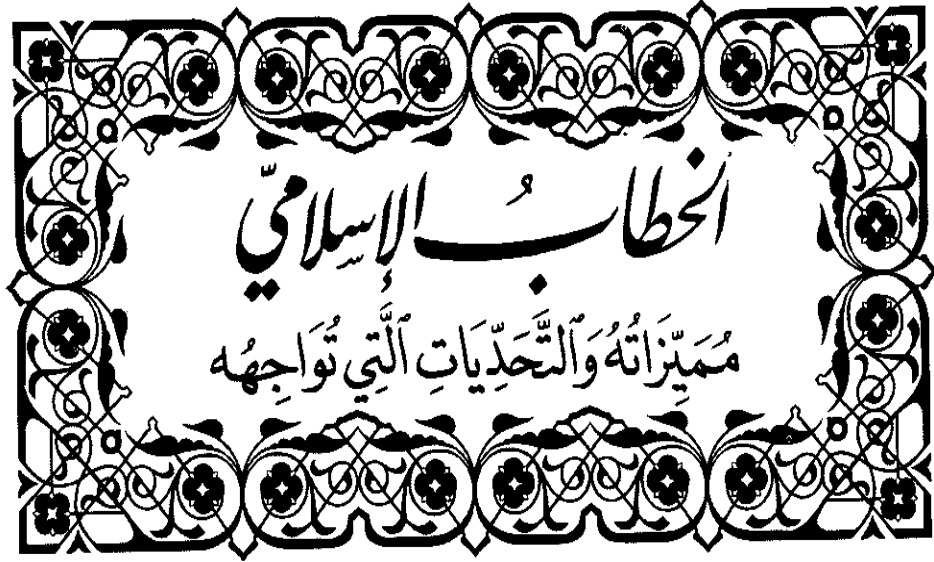 الخطابُ الإسلاميّ
مُمَيِّزَاتُهُ وَٱلتَّحَدِّيَاتِ ٱلَّتِي تُوَاجِهُه